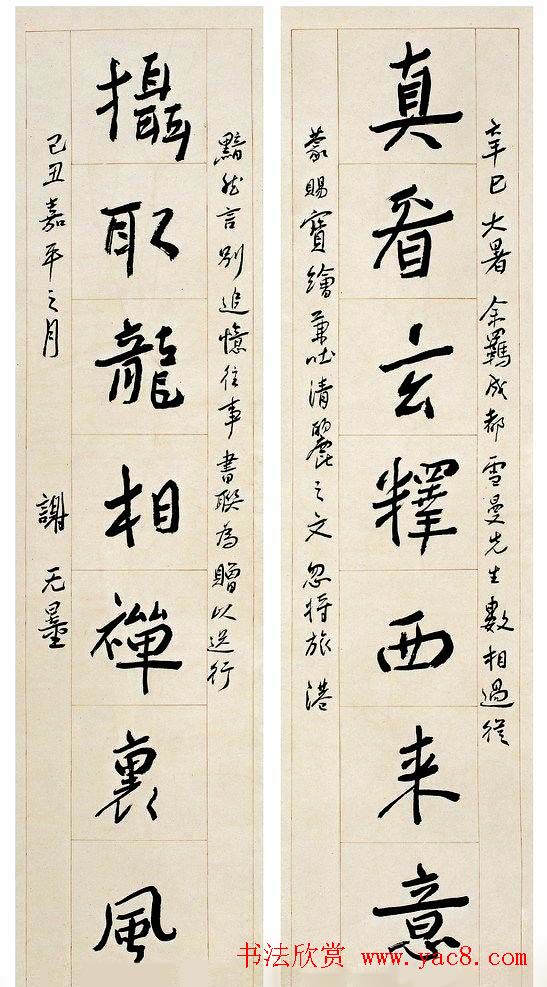 真看玄釋西来意
辛巳大暑余羈成都雪曼先生數相過從
蒙賜寶繪兼吐清麗之文忽将旅港
攝取龍相禪裏風
黯然言別追憶往事書聯為贈以送行
己丑嘉平之月 謝无量
书法欣赏 www.yac8.com